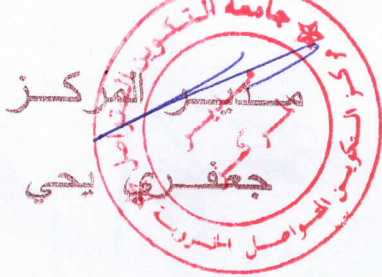 جامعة التكوين المتواصل
مركز التكوين المتواصل
مدير المركز
جعفري يحي